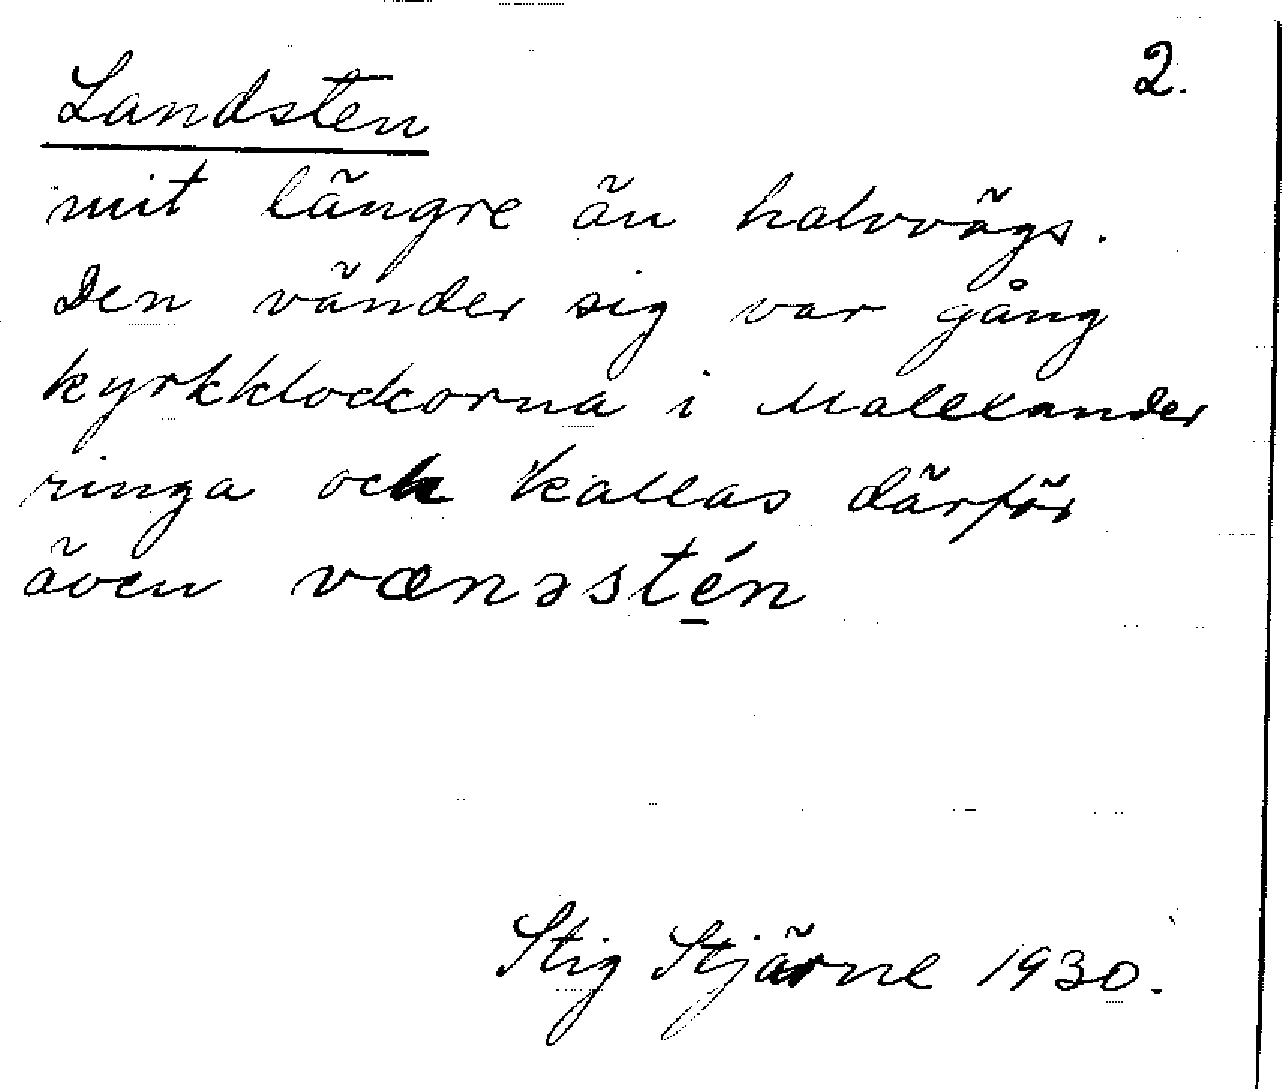 2.
Landsten
nit längre än halvvägs.
Den vänder sig var gång
kyrkklockorna i Malexander
ringa och kallas därför
även vænəstén
Stig Stjärne 1930.